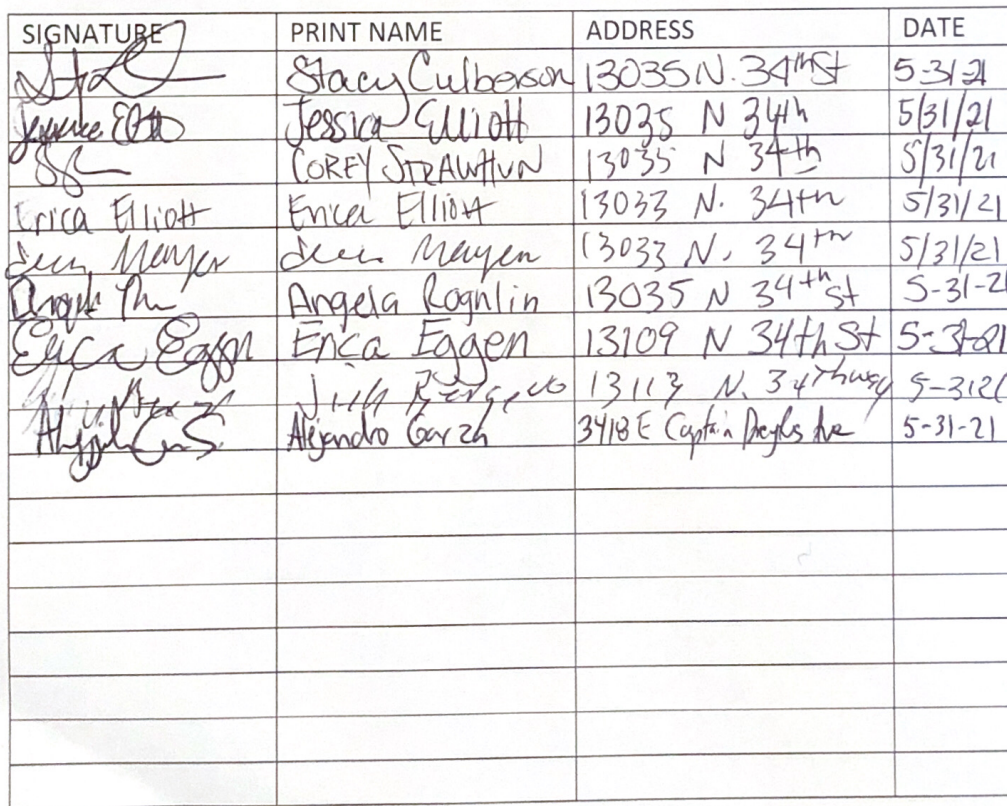 SIGNATURE PRINT NAME ADDRESS DATE
Stacy Culberson 13035 N. 34th St 5-31-21
Jessica Elliott 13035 N 34th 5/31/21
COREY STRAWHUN 13035 N 34th 5/31/21
Erica Elliott Erica Elliott 13033 N. 34th 5/31/21
13033 N. 34th 5/31/21
Angela Rognlin 13035 N 34th St 5-31-21
Erica Eggen Erica Eggen 13109 N 34th St 5-31-21
13113 N. 34th way 5-3121
Alejandro Garza 3418 E Captain Dreyfus Ave 5-31-21